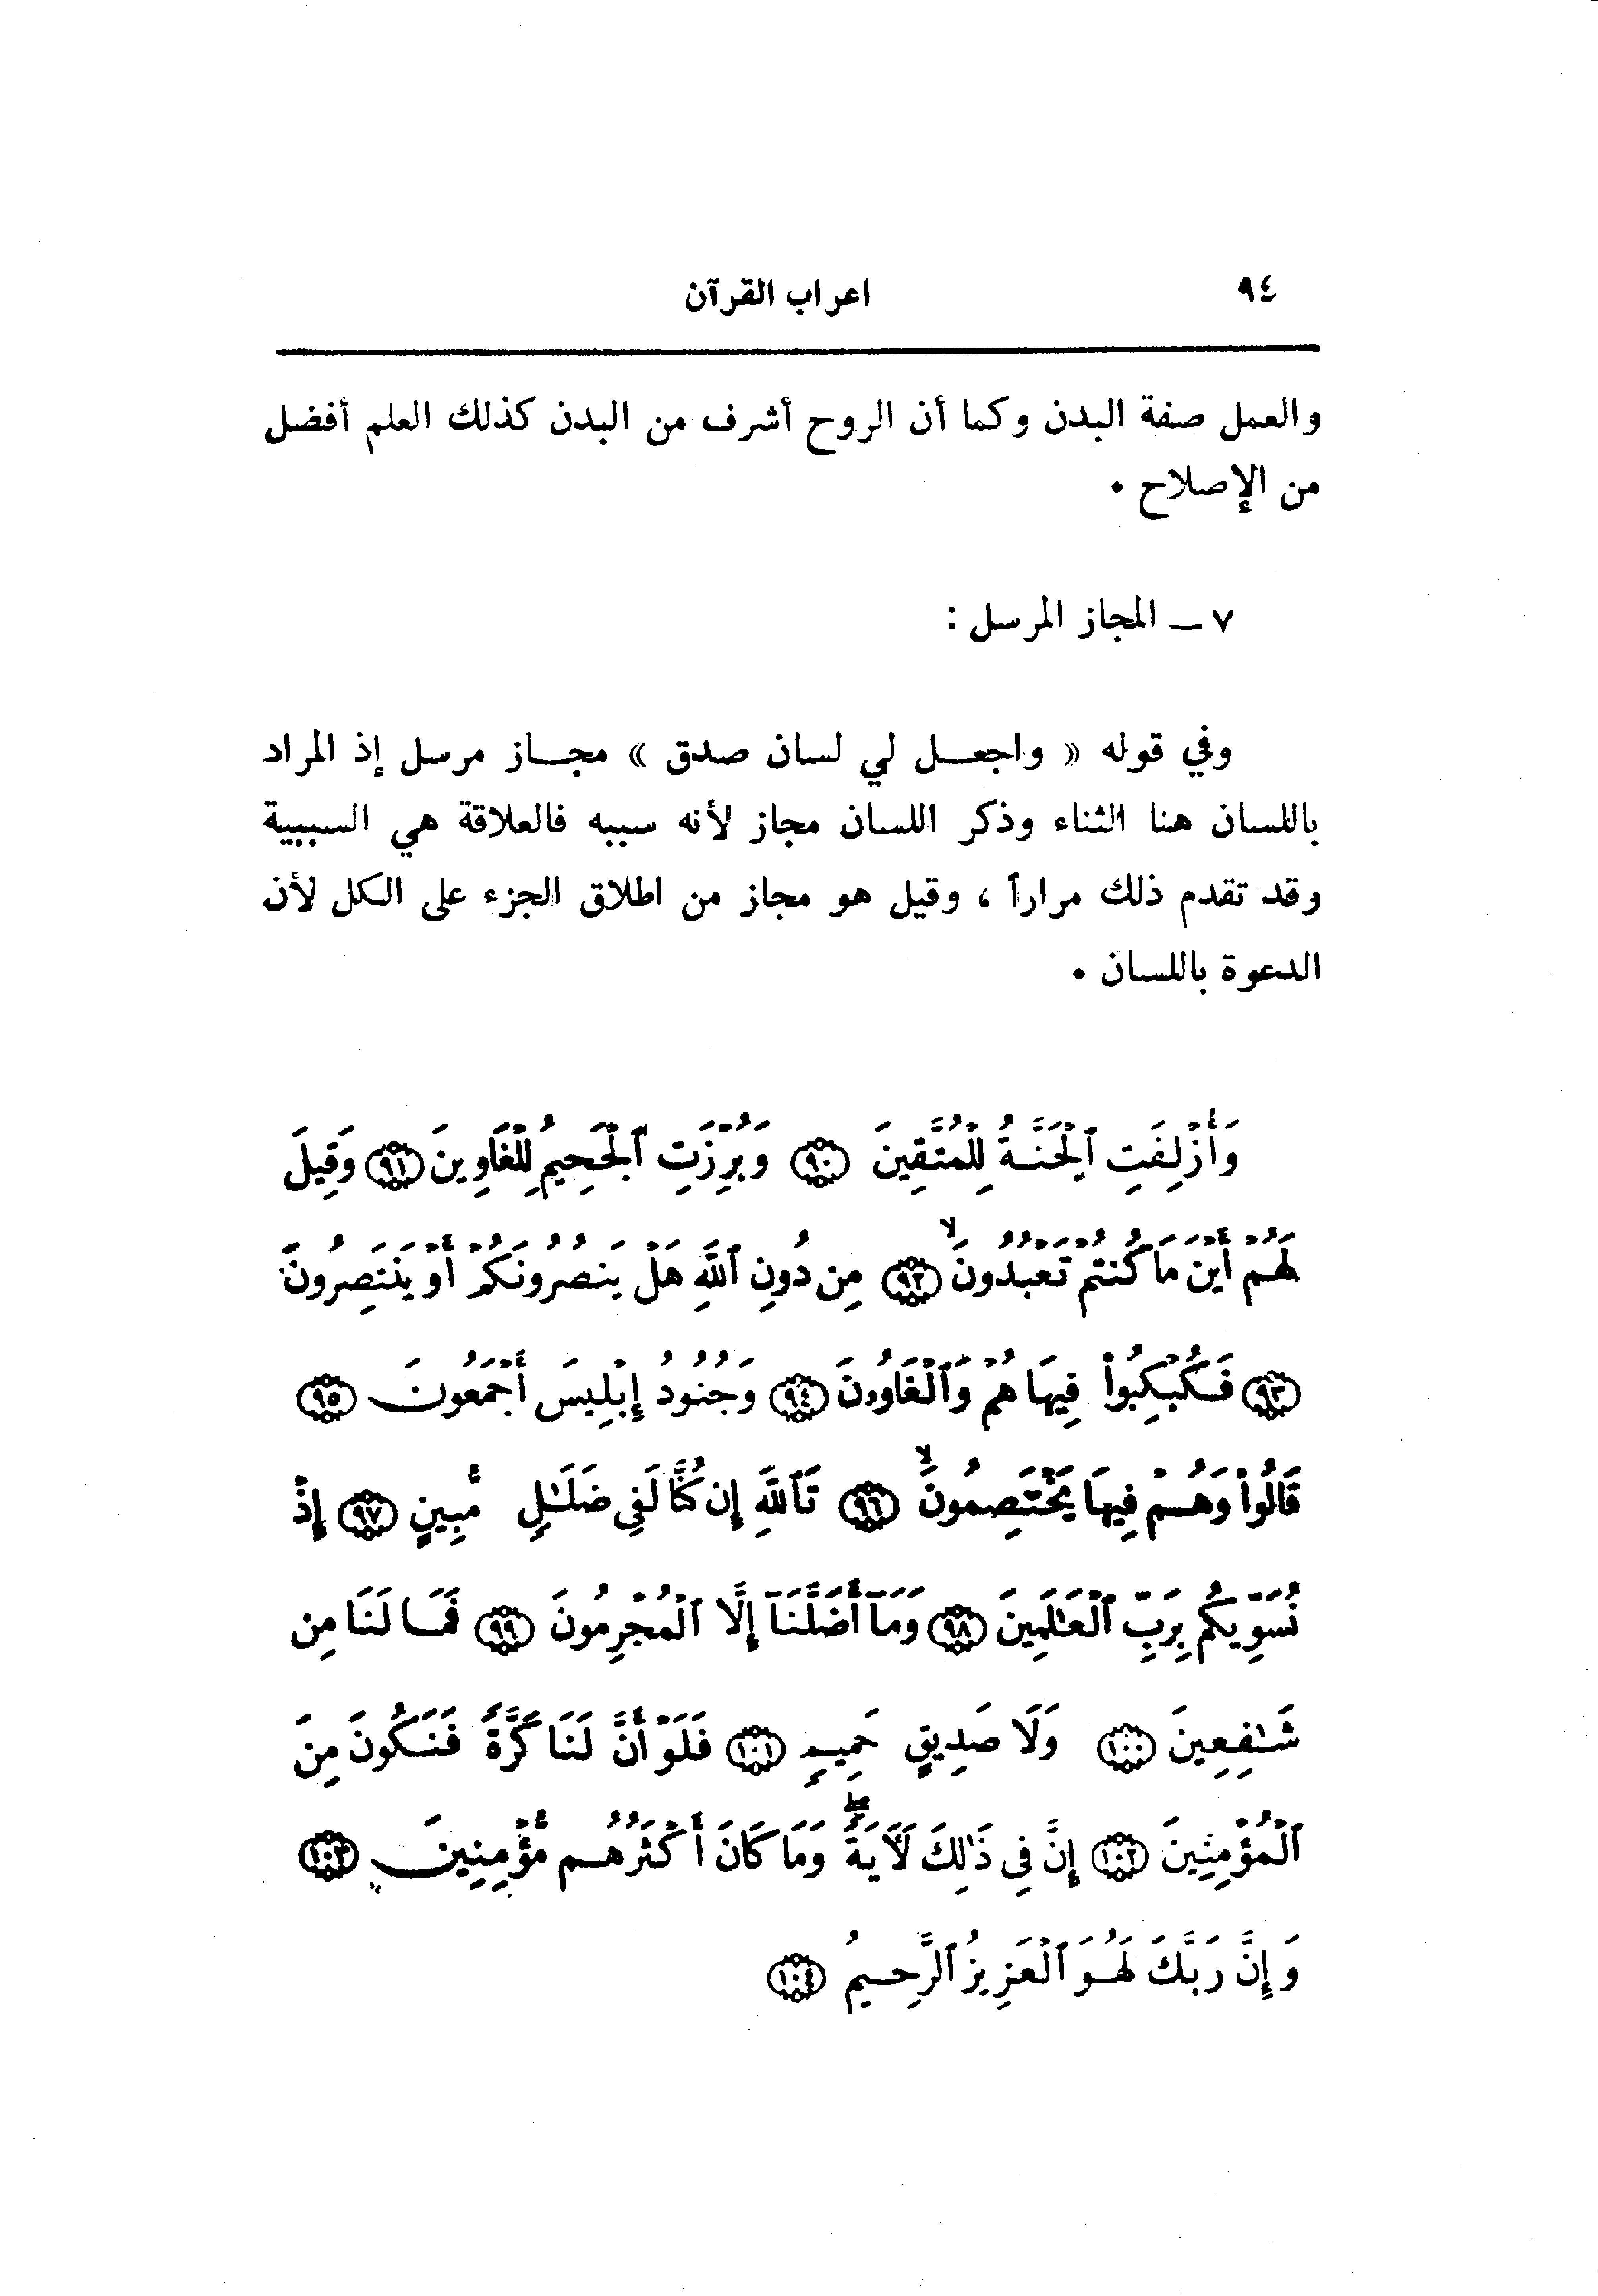 ٩٤
اعراب القرآن
والعمل صفة البدن وكما أن الروح أشرف من البدن كذلك العلم أفضل
من الإصلاح ٠
٧ ــ المجاز المرسل :
وفي قوله « واجعـــل لي لسان صدق » مجـــاز مرسل إذ المراد
باللسان هنا الثناء وذكر اللسان مجاز لأنه سببه فالعلاقة هي السببية
وقد تقدم ذلك مراراً ، وقيل هو مجاز من اطلاق الجزء على الكل لأن
الدعوة باللسان ٠
وَأُزْلِفَتِ ٱلْجَنَّةُ لِلْمُتَّقِينَ ٩٠ وَبُرِّزَتِ ٱلْجَحِيمُ لِلْغَاوِينَ ٩١ وَقِيلَ
لَهُمْ أَيْنَ مَا كُنتُمْ تَعْبُدُونَ ۙ ٩٢ مِن دُونِ ٱللَّهِ هَلْ يَنصُرُونَكُمْ أَوْ يَنتَصِرُونَ
٩٣ فَكُبْكِبُوا۟ فِيهَا هُمْ وَٱلْغَاوُۥنَ ٩٤ وَجُنُودُ إِبْلِيسَ أَجْمَعُونَ ٩٥
قَالُوا۟ وَهُمْ فِيهَا يَخْتَصِمُونَ ۙ ٩٦ تَٱللَّهِ إِن كُنَّا لَفِى ضَلَـٰلٍ مُّبِينٍ ٩٧ إِذْ
نُسَوِّيكُم بِرَبِّ ٱلْعَـٰلَمِينَ ٩٨ وَمَآ أَضَلَّنَآ إِلَّا ٱلْمُجْرِمُونَ ٩٩ فَمَا لَنَا مِن
شَـٰفِعِينَ ١٠٠ وَلَا صَدِيقٍ حَمِيمٍ ١٠١ فَلَوْ أَنَّ لَنَا كَرَّةً فَنَكُونَ مِنَ
ٱلْمُؤْمِنِينَ ١٠٢ إِنَّ فِى ذَٰلِكَ لَـَٔايَةً ۖ وَمَا كَانَ أَكْثَرُهُم مُّؤْمِنِينَ ١٠٣
وَإِنَّ رَبَّكَ لَهُوَ ٱلْعَزِيزُ ٱلرَّحِيمُ ١٠٤